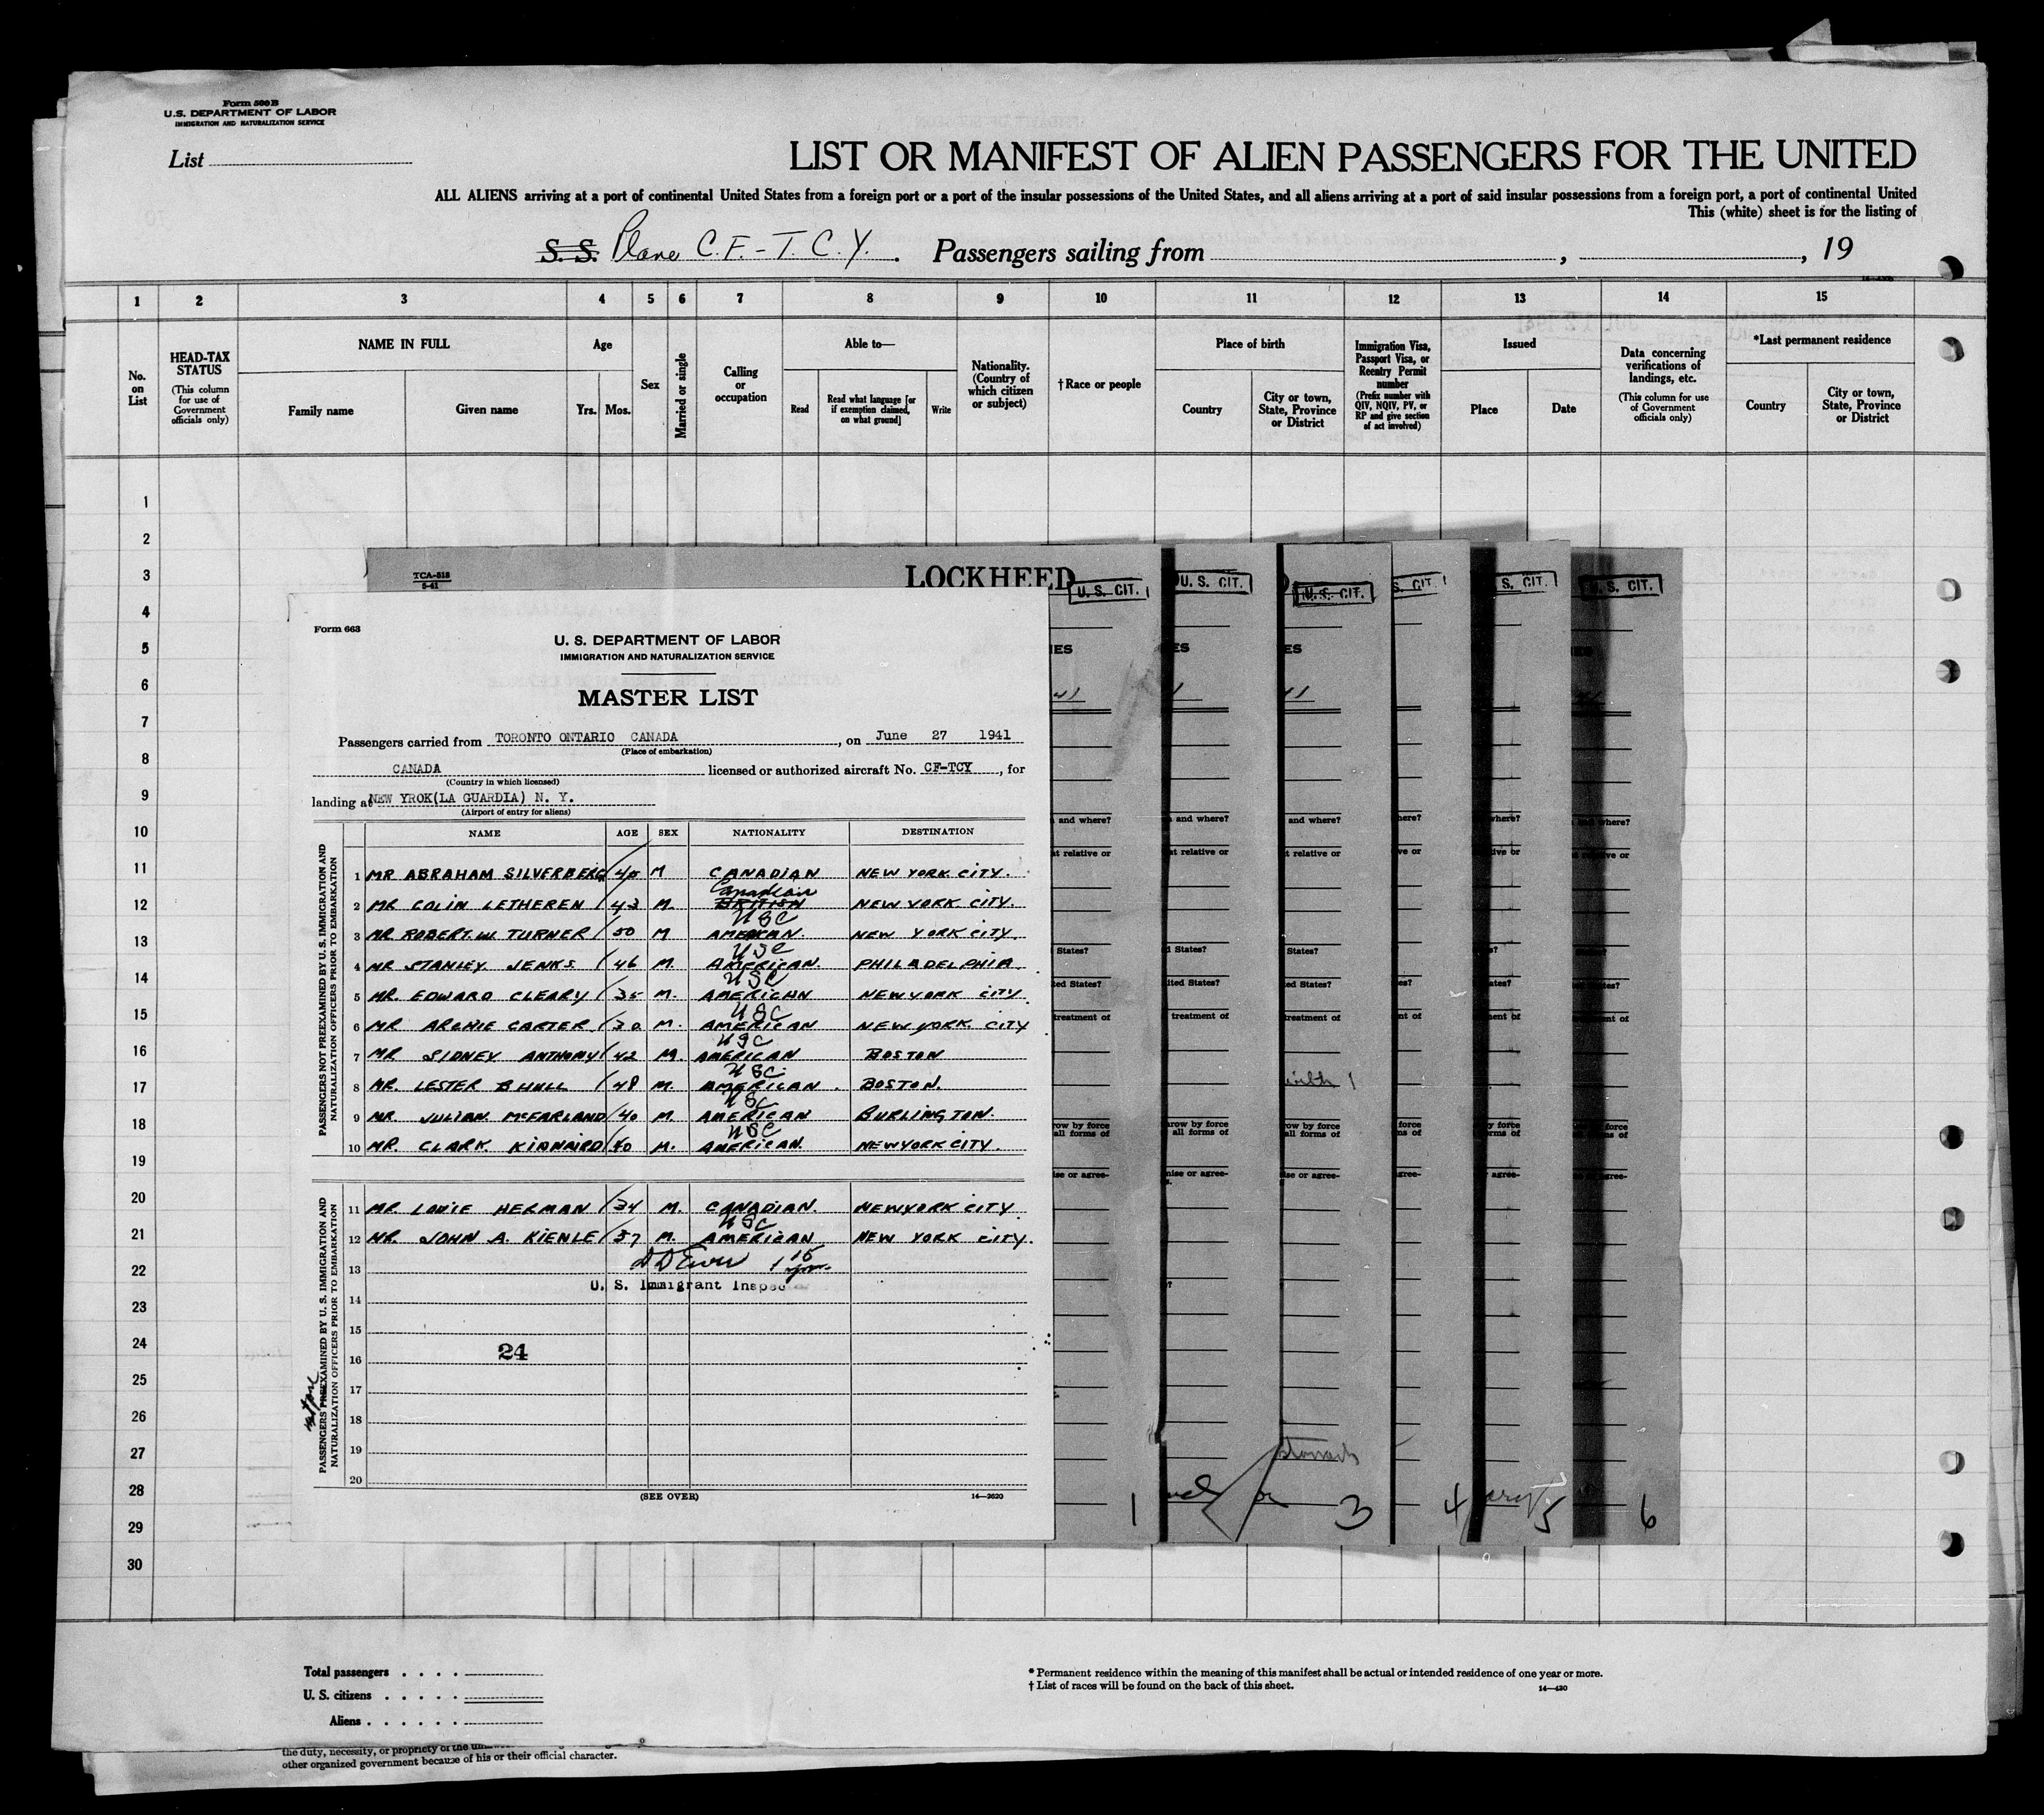 Form 500 B
U.S. DEPARTMENT OF LABOR
IMMIGRATION AND NATURALIZATION SERVICE
List
LIST OR MANIFEST OF ALIEN PASSENGERS FOR THE UNITED
ALL ALIENS arriving at a port of continental United States from a foreign port or a port of the insular possessions of the United States, and all aliens arriving at a port of said insular possessions from a foreign port, a port of continental United
This (white) sheet is for the listing of
S. S. Plane C.F.-T.C.Y. Passengers sailing from , , 19
1 2 3 4 5 6 7 8 9 10 11 12 13 14 15
No. on List
HEAD-TAX STATUS
(This column for use of Government officials only)
NAME IN FULL
Family name
Given name
Age
Yrs. Mos.
Sex
Married or single
Calling or occupation
Able to—
Read
Read what language [or if exemption claimed, on what ground]
Write
Nationality. (Country of which citizen or subject)
†Race or people
Place of birth
Country
City or town, State, Province or District
Immigration Visa, Passport Visa, or Reentry Permit number
(Prefix number with QIV, NQIV, PV, or RP and give section of act involved)
Issued
Place
Date
Data concerning verifications of landings, etc.
(This column for use of Government officials only)
*Last permanent residence
Country
City or town, State, Province or District
1
2
3
4
5
6
7
8
9
10
11
12
13
14
15
16
17
18
19
20
21
22
23
24
25
26
27
28
29
30
TCA-515
5-41
LOCKHEED
U. S. CIT.
U. S. CIT.
U. S. CIT.
S. CIT.
S. CIT.
U. S. CIT.
Form 663
U. S. DEPARTMENT OF LABOR
IMMIGRATION AND NATURALIZATION SERVICE
MASTER LIST
Passengers carried from TORONTO ONTARIO CANADA, on June 27 1941
(Place of embarkation)
CANADA licensed or authorized aircraft No. CF-TCY, for
(Country in which licensed)
landing at NEW YROK(LA GUARDIA) N. Y.
(Airport of entry for aliens)
NAME AGE SEX NATIONALITY DESTINATION
PASSENGERS NOT PREEXAMINED BY U. S. IMMIGRATION AND NATURALIZATION OFFICERS PRIOR TO EMBARKATION
1 MR ABRAHAM SILVERBERG 40 M CANADIAN NEW YORK CITY.
Canadian
2 MR COLIN LETHEREN 43 M. BRITISH NEW YORK CITY.
USC
3 MR ROBERT. W TURNER 50 M AMERICAN. NEW YORK CITY.
USC
4 MR STANLEY JENKS 46 M. AMERICAN. PHILADELPHIA
USC
5 MR. EDWARD CLEARY 35 M. AMERICAN NEW YORK CITY
USC
6 MR ARCHIE CARTER 30 M. AMERICAN NEW YORK CITY
USC
7 MR SIDNEY ANTHONY 42 M. AMERICAN BOSTON
USC
8 MR. LESTER B HULL 48 M. AMERICAN. BOSTON.
USC
9 MR. JULIAN MCFARLAND 40 M. AMERICAN BURLINGTON.
USC
10 MR. CLARK KINNAIRD 40 M. AMERICAN. NEW YORK CITY.
PASSENGERS PREEXAMINED BY U. S. IMMIGRATION AND NATURALIZATION OFFICERS PRIOR TO EMBARKATION
11 MR LOUIE HERMAN 34 M. CANADIAN. NEW YORK CITY
USC
12 MR. JOHN A. KIENLE 37 M. AMERICAN NEW YORK CITY.
13
U. S. Immigrant Inspec
14
15
24
16
17
18
19
20
(SEE OVER)
14—2620
and where?
at relative or
States?
ted States?
treatment of
row by force
all forms of
ise or agree-
1
3
4
5
6
Total passengers
U. S. citizens
Aliens
* Permanent residence within the meaning of this manifest shall be actual or intended residence of one year or more.
† List of races will be found on the back of this sheet.
14—430
the duty, necessity, or propriety of the
other organized government because of his or their official character.